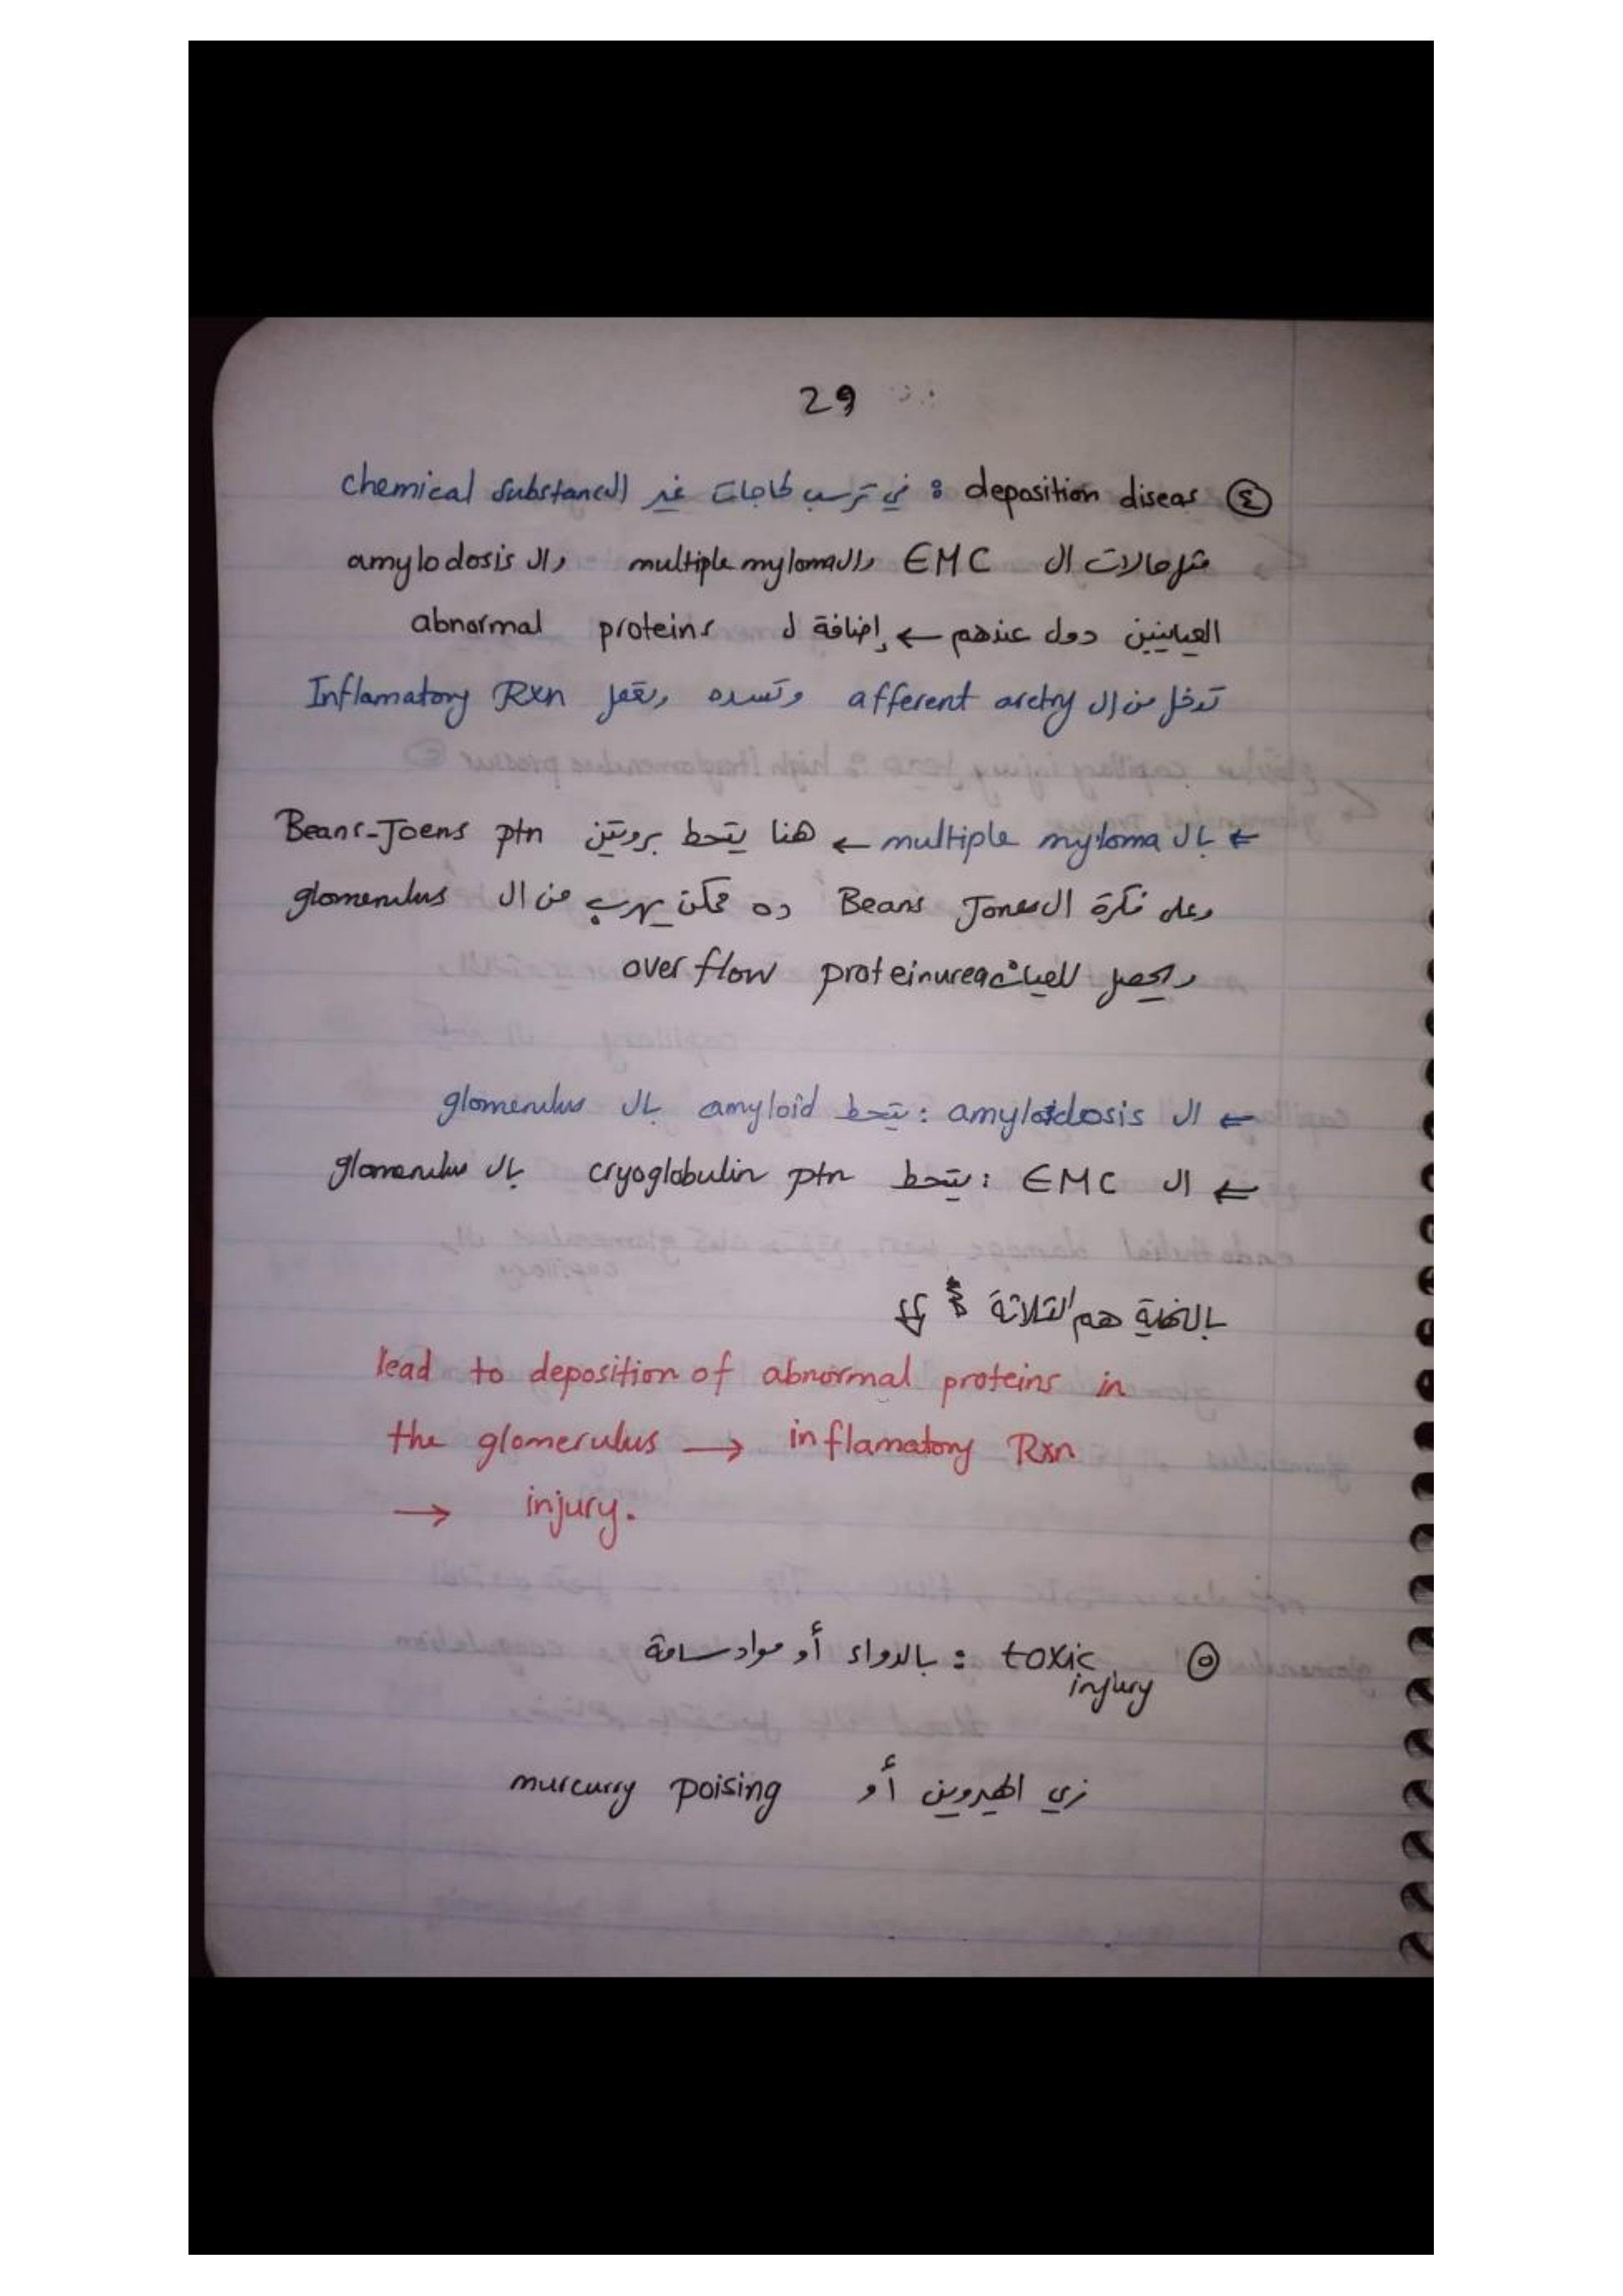 29
④ deposition diseas : في ترسب لحاجات غير ال chemical substance
مثل حالات ال EMC وال multiple myloma وال amylodosis
العيانين دول عندهم ← إضافة ل abnormal proteins
تدخل من ال afferent arctry وتسده وتعمل Inflamatory Rxn
⇐ بال multiple myloma ← هنا يتحط بروتين Beans-Joens ptn
وعلى فكرة ال Beans Jones ده ممكن يهرب من ال glomerulus
ويحصل للعيان over flow proteinurea
⇐ ال amyloidosis : يتحط amyloid بال glomerulus
⇐ ال EMC : يتحط cryoglobulin ptn بال glomerulus
بالنهاية هم الثلاثة
lead to deposition of abnormal proteins in
the glomerulus → inflamatory Rxn
→ injury.
⑤ toxic injury : بالدواء أو مواد سامة
زي الهيروين أو murcurry poising